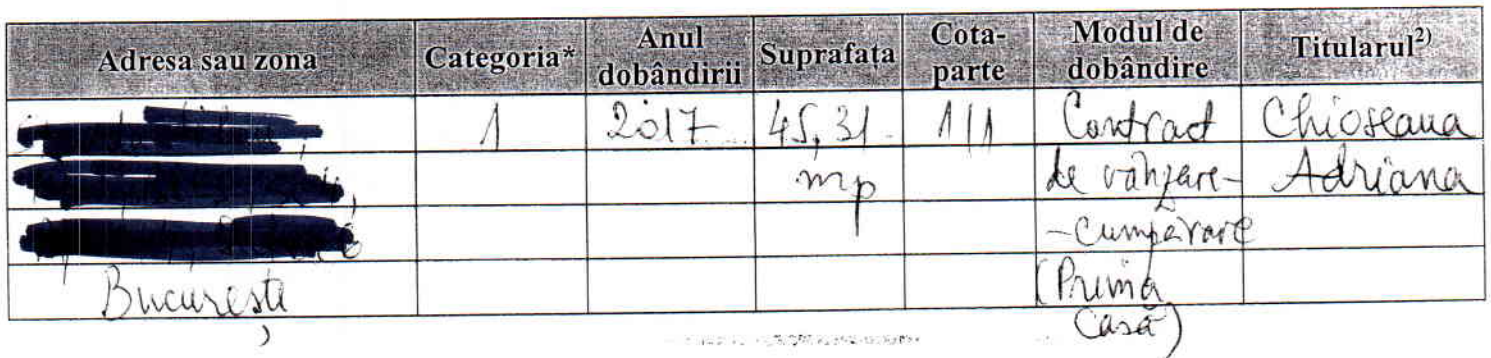 Adresa sau zona Categoria* Anul dobândirii Suprafața Cota-parte Modul de dobândire Titularul2)
1 2017 45,31 1/1 Contract Chioseaua
mp de vânzare- Adriana
-cumpărare
București (Prima
casă)